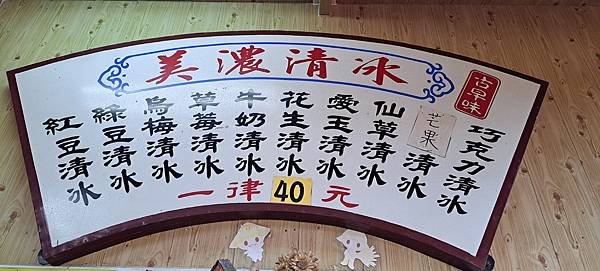 美濃清冰
古早味
巧克力清冰
芒果清冰
仙草清冰
愛玉清冰
花生清冰
牛奶清冰
草莓清冰
烏梅清冰
綠豆清冰
紅豆清冰
一律40元